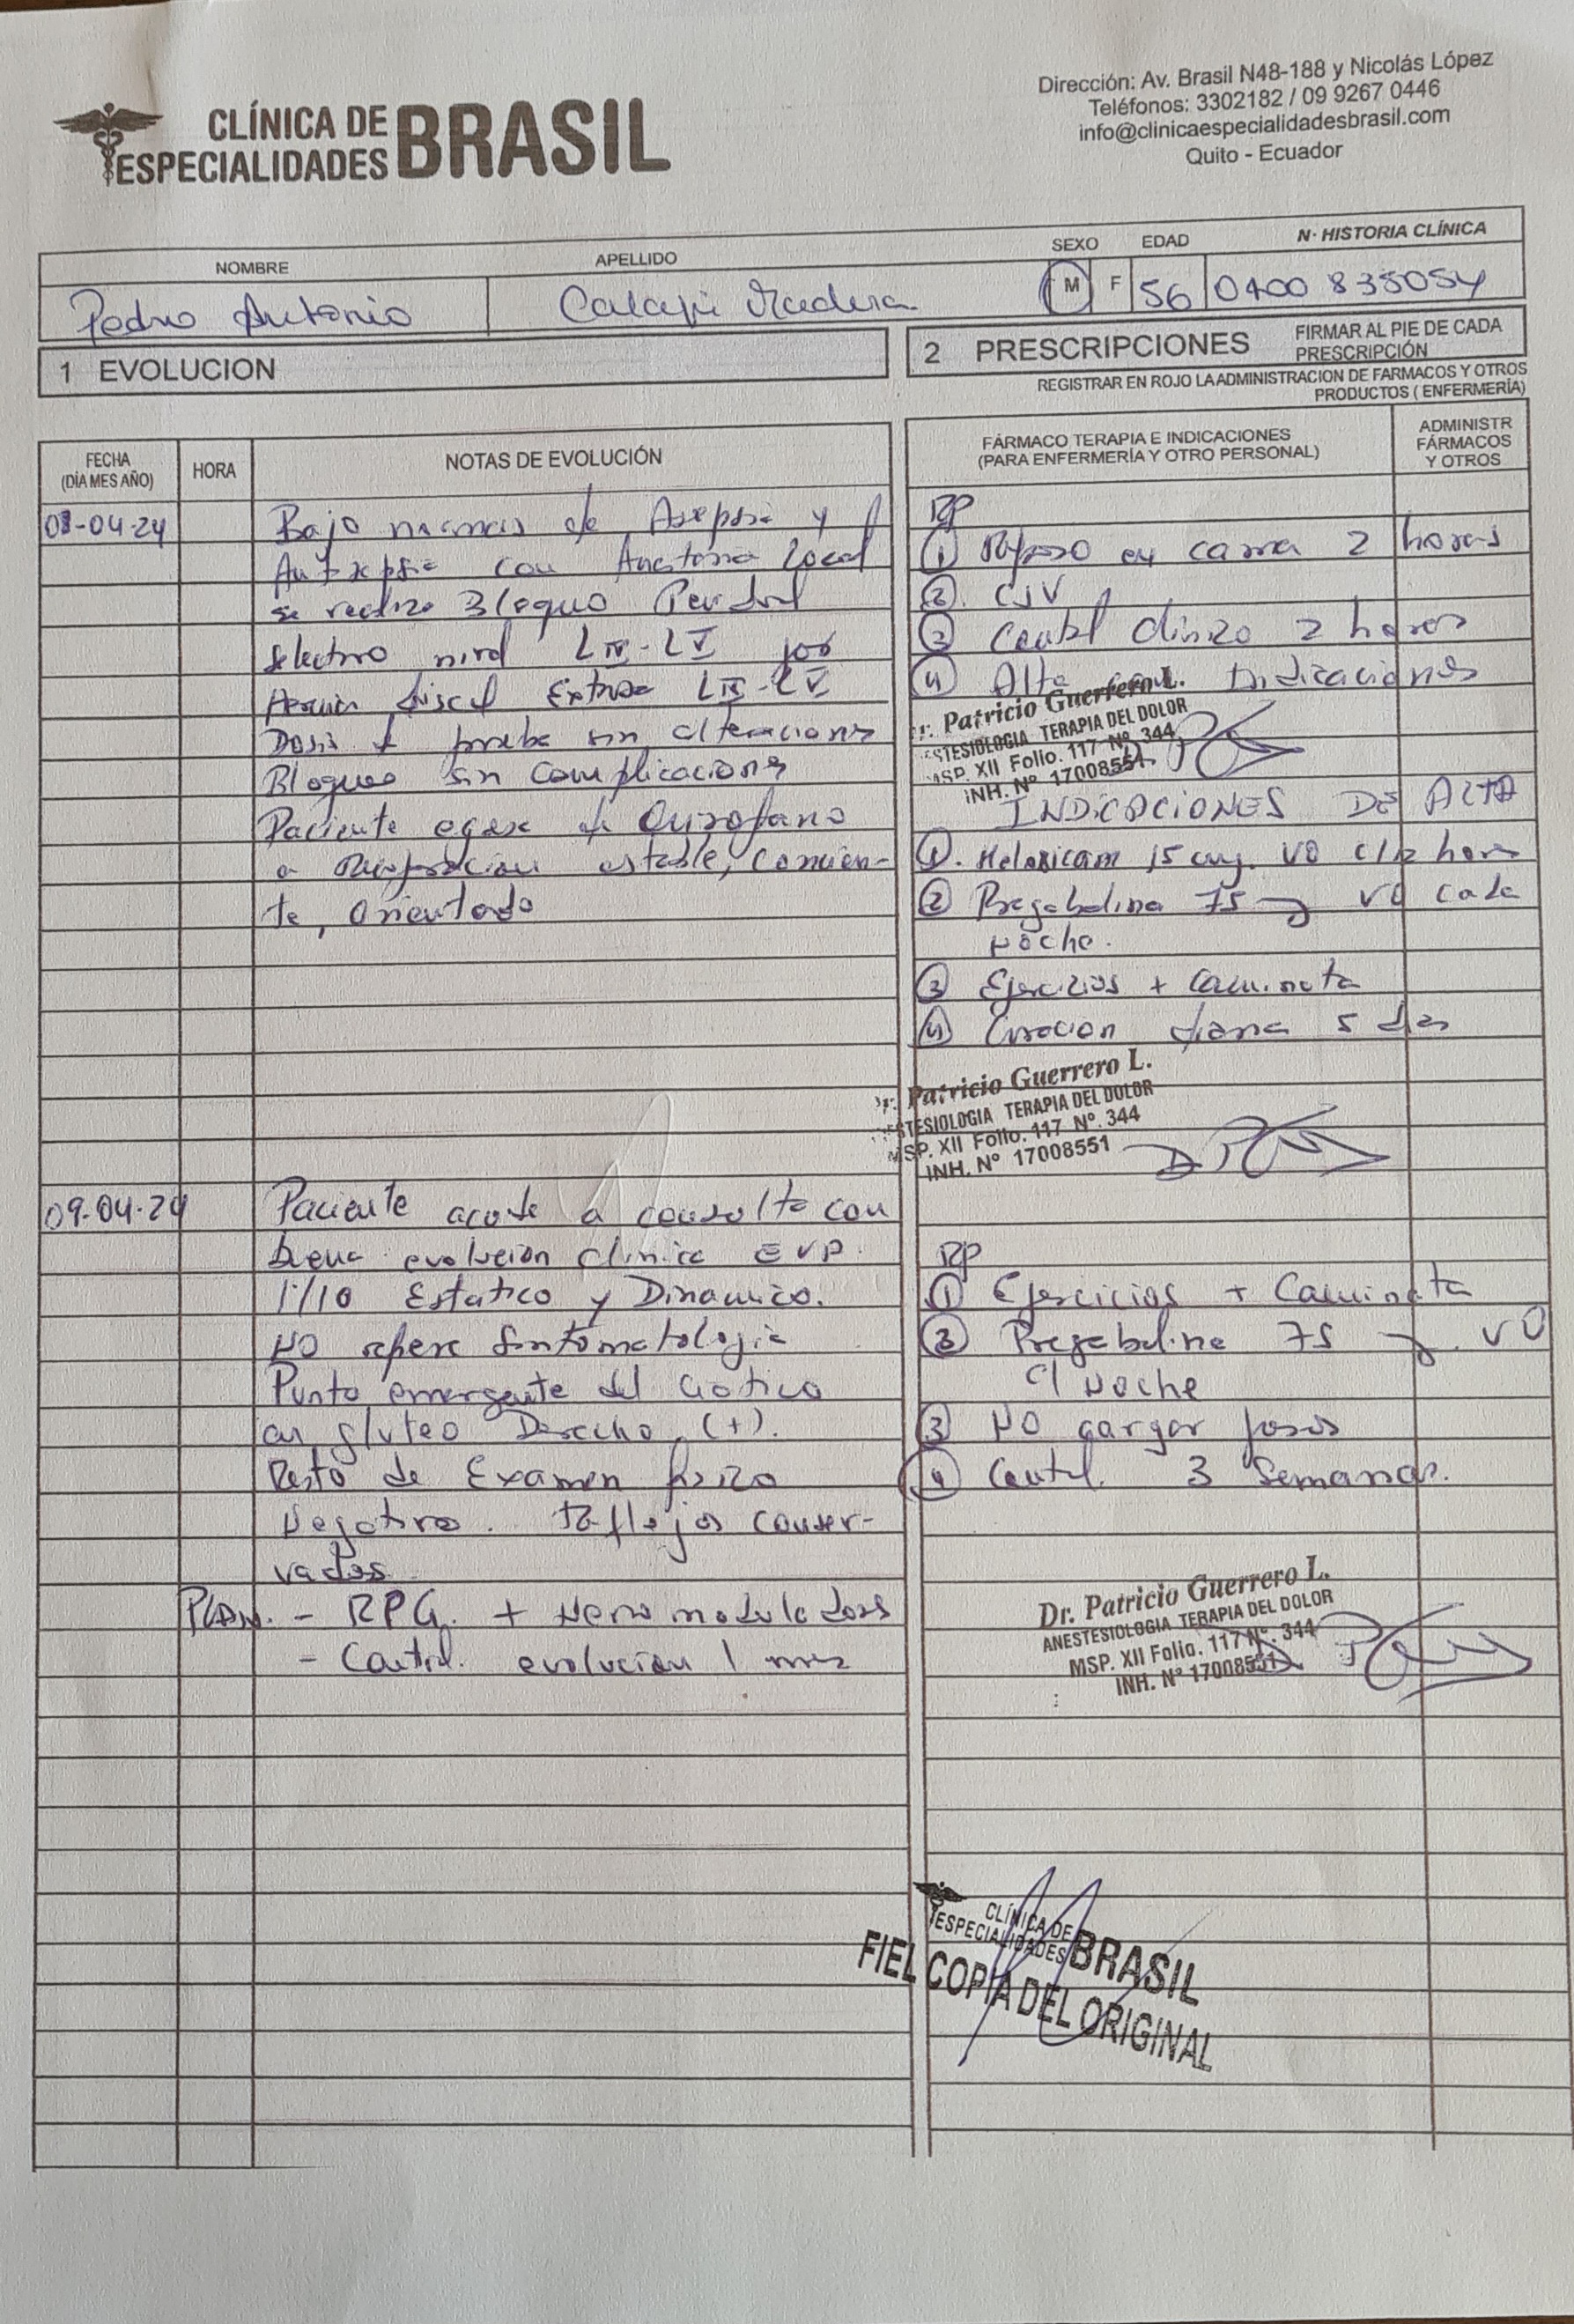 CLÍNICA DE ESPECIALIDADES BRASIL
Dirección: Av. Brasil N48-188 y Nicolás López
Teléfonos: 3302182 / 09 9267 0446
info@clinicaespecialidadesbrasil.com
Quito - Ecuador
NOMBRE APELLIDO SEXO EDAD N· HISTORIA CLÍNICA
Pedro Antonio M F 56
1 EVOLUCION
2 PRESCRIPCIONES FIRMAR AL PIE DE CADA PRESCRIPCIÓN
REGISTRAR EN ROJO LA ADMINISTRACION DE FARMACOS Y OTROS
PRODUCTOS ( ENFERMERÍA)
FECHA
(DÍA MES AÑO)
HORA
NOTAS DE EVOLUCIÓN
08-04-24 Bajo normas de Asepsia y
Antisepsia con Anestesia Local
se realizo Bloqueo Peridural
selectivo nivel LIV-LV por
Hernia discal Extruida LIV-LV
Dosis d prueba sin alteraciones
Bloqueo sin complicaciones
Paciente egresa de Quirofano
a Recuperacion estable, concien-
te, orientado
09-04-24 Paciente acude a consulta con
buena evolucion clinica EVA.
1/10 Estatico y Dinamico.
NO refiere Sintomatologia
Punto emergente del Ciatico
en gluteo Derecho (+).
Resto de Examen fisico
Negativo. Reflejos conser-
vados
PLAN. - RPG. + Neuromoduladores
- Control. evolucion 1 mes
FÁRMACO TERAPIA E INDICACIONES
(PARA ENFERMERÍA Y OTRO PERSONAL)
ADMINISTR
FÁRMACOS
Y OTROS
RP
1 Reposo en cama 2 horas
2. CSV
3 Control clinico 2 horas
4 Alta con Indicaciones
r. Patricio Guerrero L.
STESIOLOGIA TERAPIA DEL DOLOR
MSP. XII Folio. 117 Nº 344
INH. Nº 17008551
INDICACIONES DE ALTA
1. Meloxicam 15 mg. VO c/12 horas
2 Pregabalina 75 mg VO cada
Noche.
3 Ejercicios + Caminata
4 Curacion diaria 5 dias
r. Patricio Guerrero L.
STESIOLOGIA TERAPIA DEL DOLOR
MSP. XII Folio. 117 Nº. 344
INH. Nº 17008551
RP
1 Ejercicios + Caminata
2 Pregabalina 75 mg. VO
c/ Noche
3 NO cargar pesos
4 Control. 3 Semanas.
Dr. Patricio Guerrero L.
ANESTESIOLOGIA TERAPIA DEL DOLOR
MSP. XII Folio. 117 Nº. 344
INH. Nº 17008551
CLÍNICA DE ESPECIALIDADES BRASIL
FIEL COPIA DEL ORIGINAL